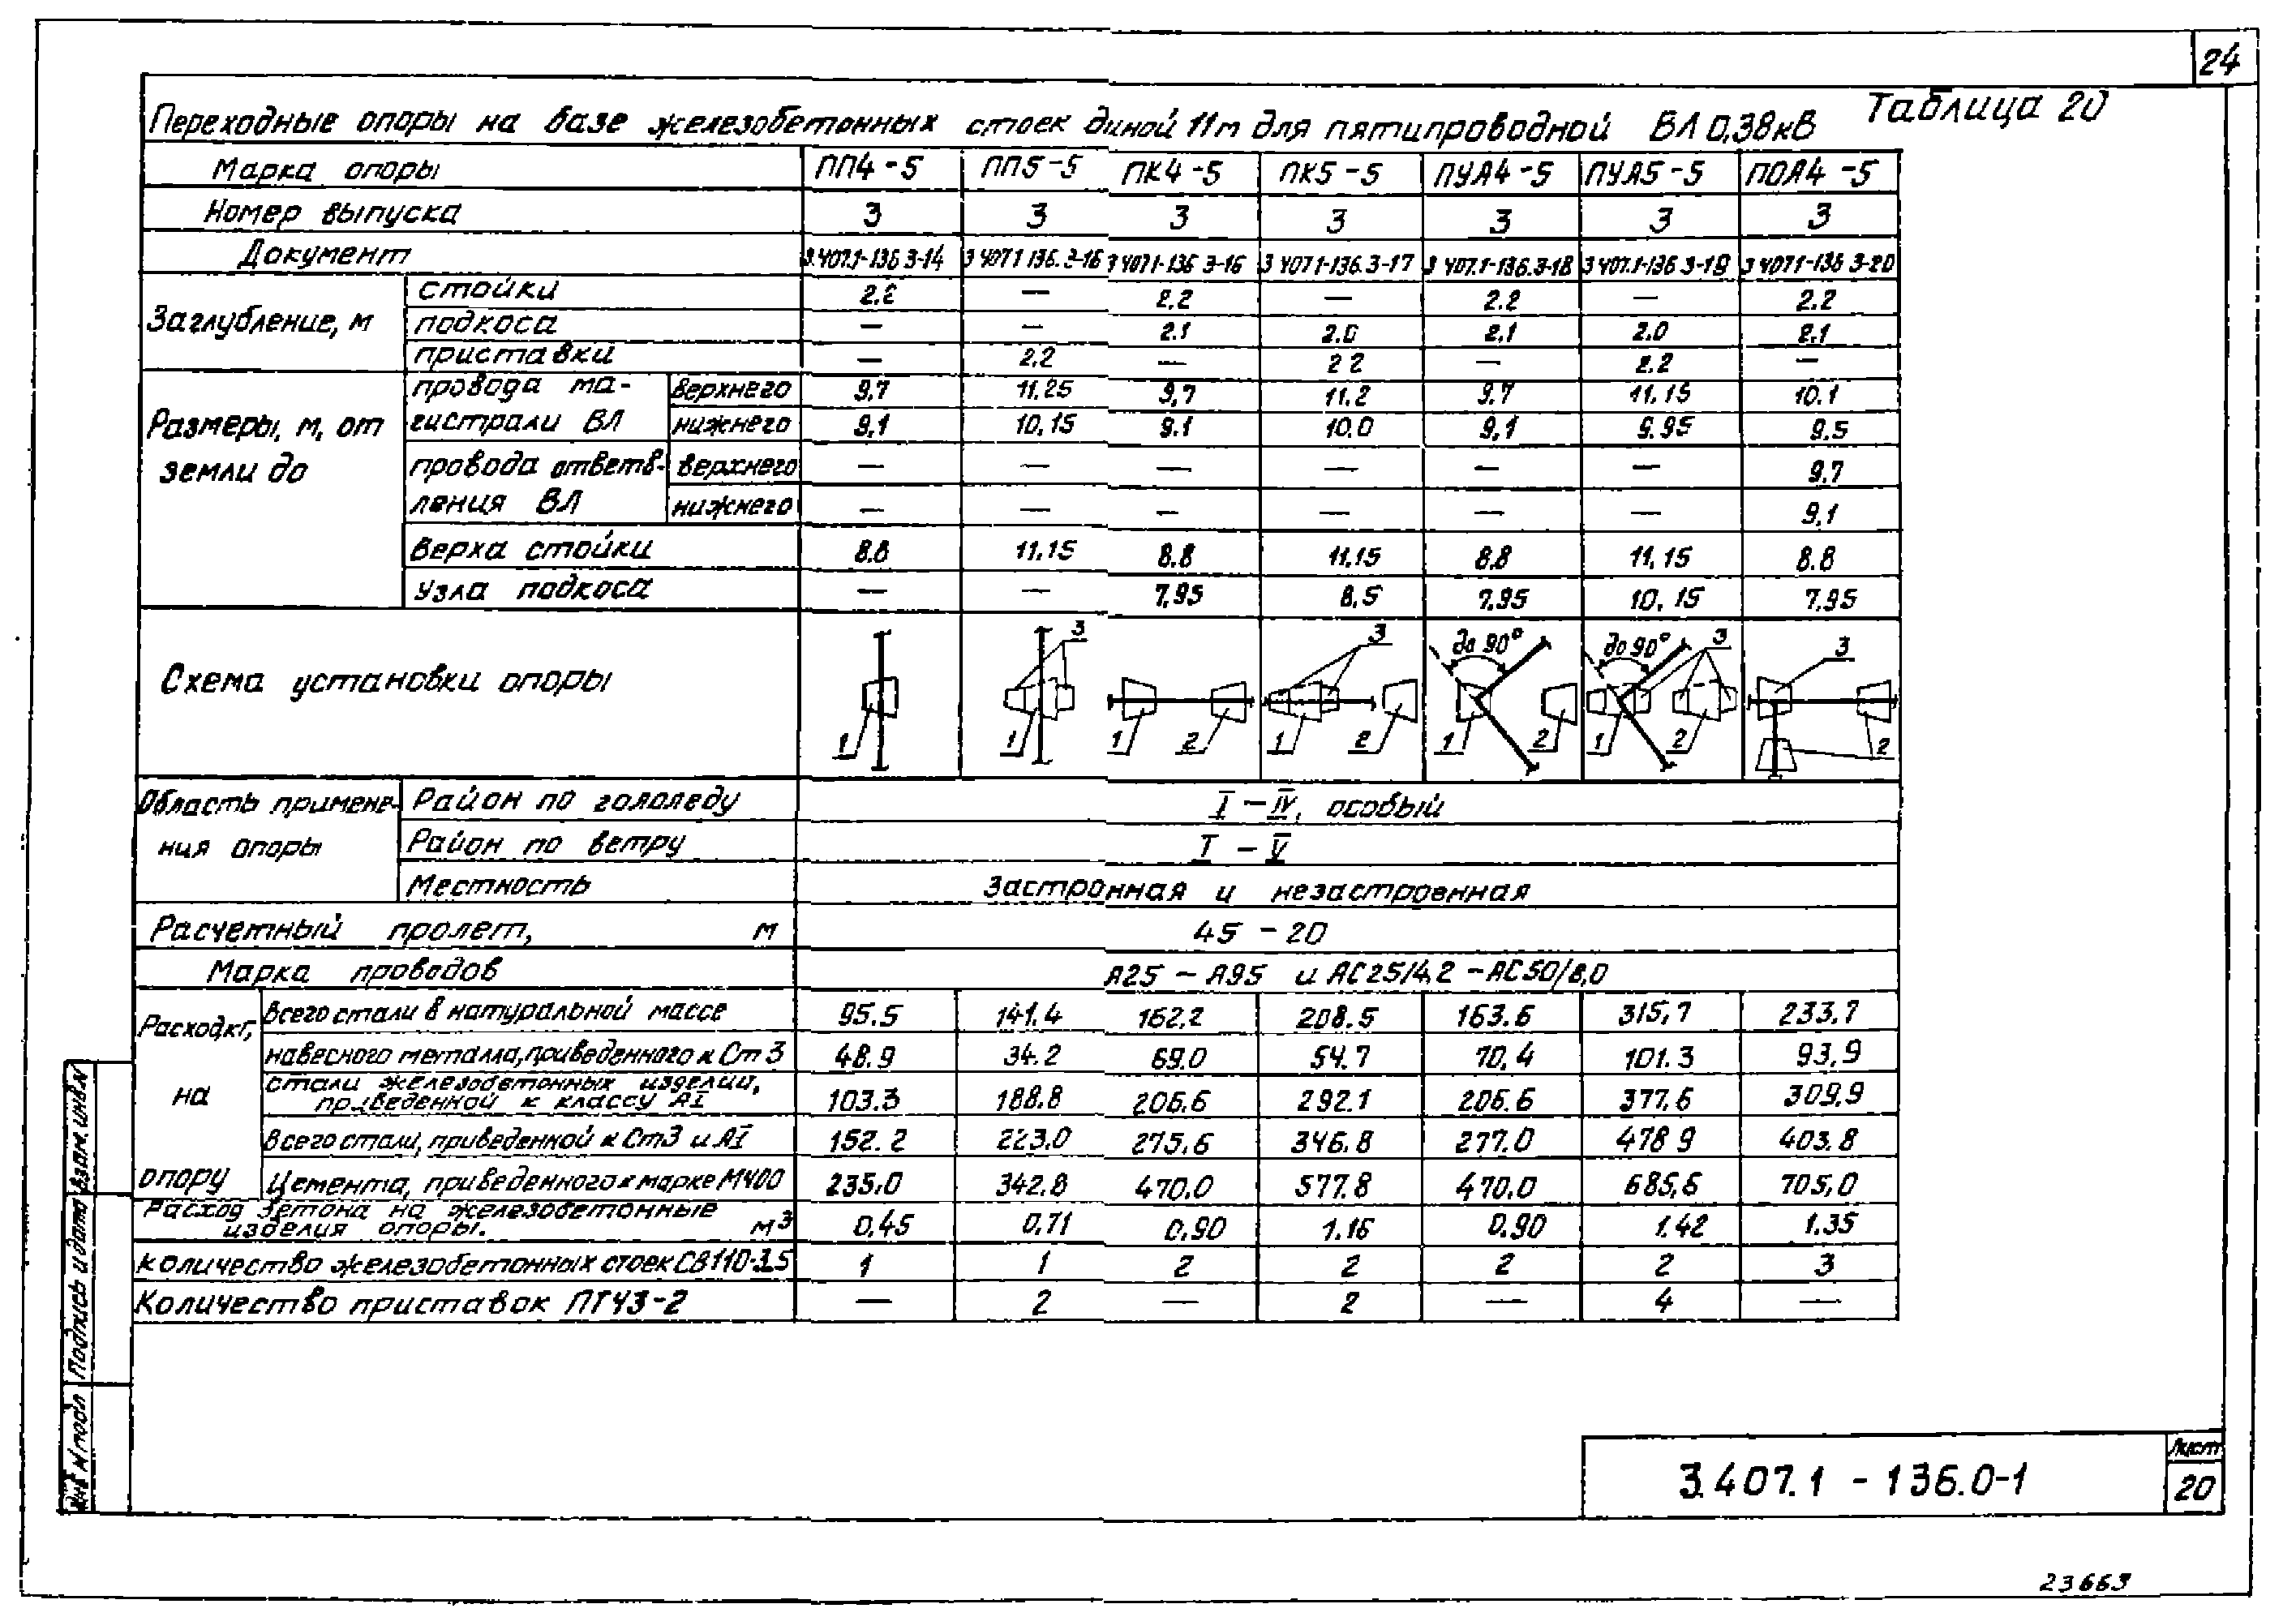 24
Таблица 20
Переходные опоры на базе железобетонных стоек диной 11м для пятипроводной ВЛ 0,38кВ
Марка опоры ПП4-5 ПП5-5 ПК4-5 ПК5-5 ПУА4-5 ПУА5-5 ПОА4-5
Номер выпуска 3 3 3 3 3 3 3
Документ 3.407.1-136 3-14 3 407 1 136. 3-16 3 407 1-136 3-16 3 407 1-136. 3-17 3 407.1-136.3-18 3 407.1-136 3-19 3 407 1-136 3-20
Заглубление, м
стойки 2.2 — 2.2 — 2.2 — 2.2
подкоса — — 2.1 2.0 2.1 2.0 2.1
приставки — 2.2 — 2 2 — 2.2 —
Размеры, м, от земли до
провода магистрали ВЛ
верхнего 9,7 11.25 9,7 11.2 9.7 11.15 10.1
нижнего 9,1 10,15 9.1 10.0 9,1 9.95 9.5
провода ответвления ВЛ
верхнего — — — — — — 9.7
нижнего — — — — — — 9,1
Верха стойки 8.8 11.15 8.8 11,15 8.8 11,15 8.8
Узла подкоса — — 7,95 8,5 7,95 10,15 7.95
Схема установки опоры
1
3 1
1 2
3 1 2
до 90° 1 2
до 90° 3 1 2
3 2
Область применения опоры
Район по гололеду I - IV, особый
Район по ветру I - V
Местность Застронная и незастроенная
Расчетный пролет, м 45 - 20
Марка проводов А25 - А95 и АС25/4,2 - АС50/8,0
Расход,кг, на опору
Всего стали в натуральной массе 95.5 141.4 162.2 208.5 163.6 315,7 233.7
навесного металла,приведенного к Ст 3 48.9 34.2 69.0 54.7 70,4 101.3 93,9
стали железобетонных изделий, приведенной к классу АI 103.3 188.8 206.6 292.1 206.6 377.6 309.9
Всего стали, приведенной к Ст3 и АI 152.2 223.0 275.6 346.8 277.0 478 9 403.8
Цемента, приведенного к марке М400 235.0 342.8 470.0 577.8 470.0 685,6 705,0
Расход бетона на железобетонные изделия опоры. м3 0,45 0,71 0,90 1.16 0,90 1.42 1.35
количество железобетонных стоек СВ110-3.5 1 1 2 2 2 2 3
Количество приставок ПТ43-2 — 2 — 2 — 4 —
Взам. инв.N
Подпись и дата
Инв N подл
3.407.1 - 136.0-1
Лист
20
23663